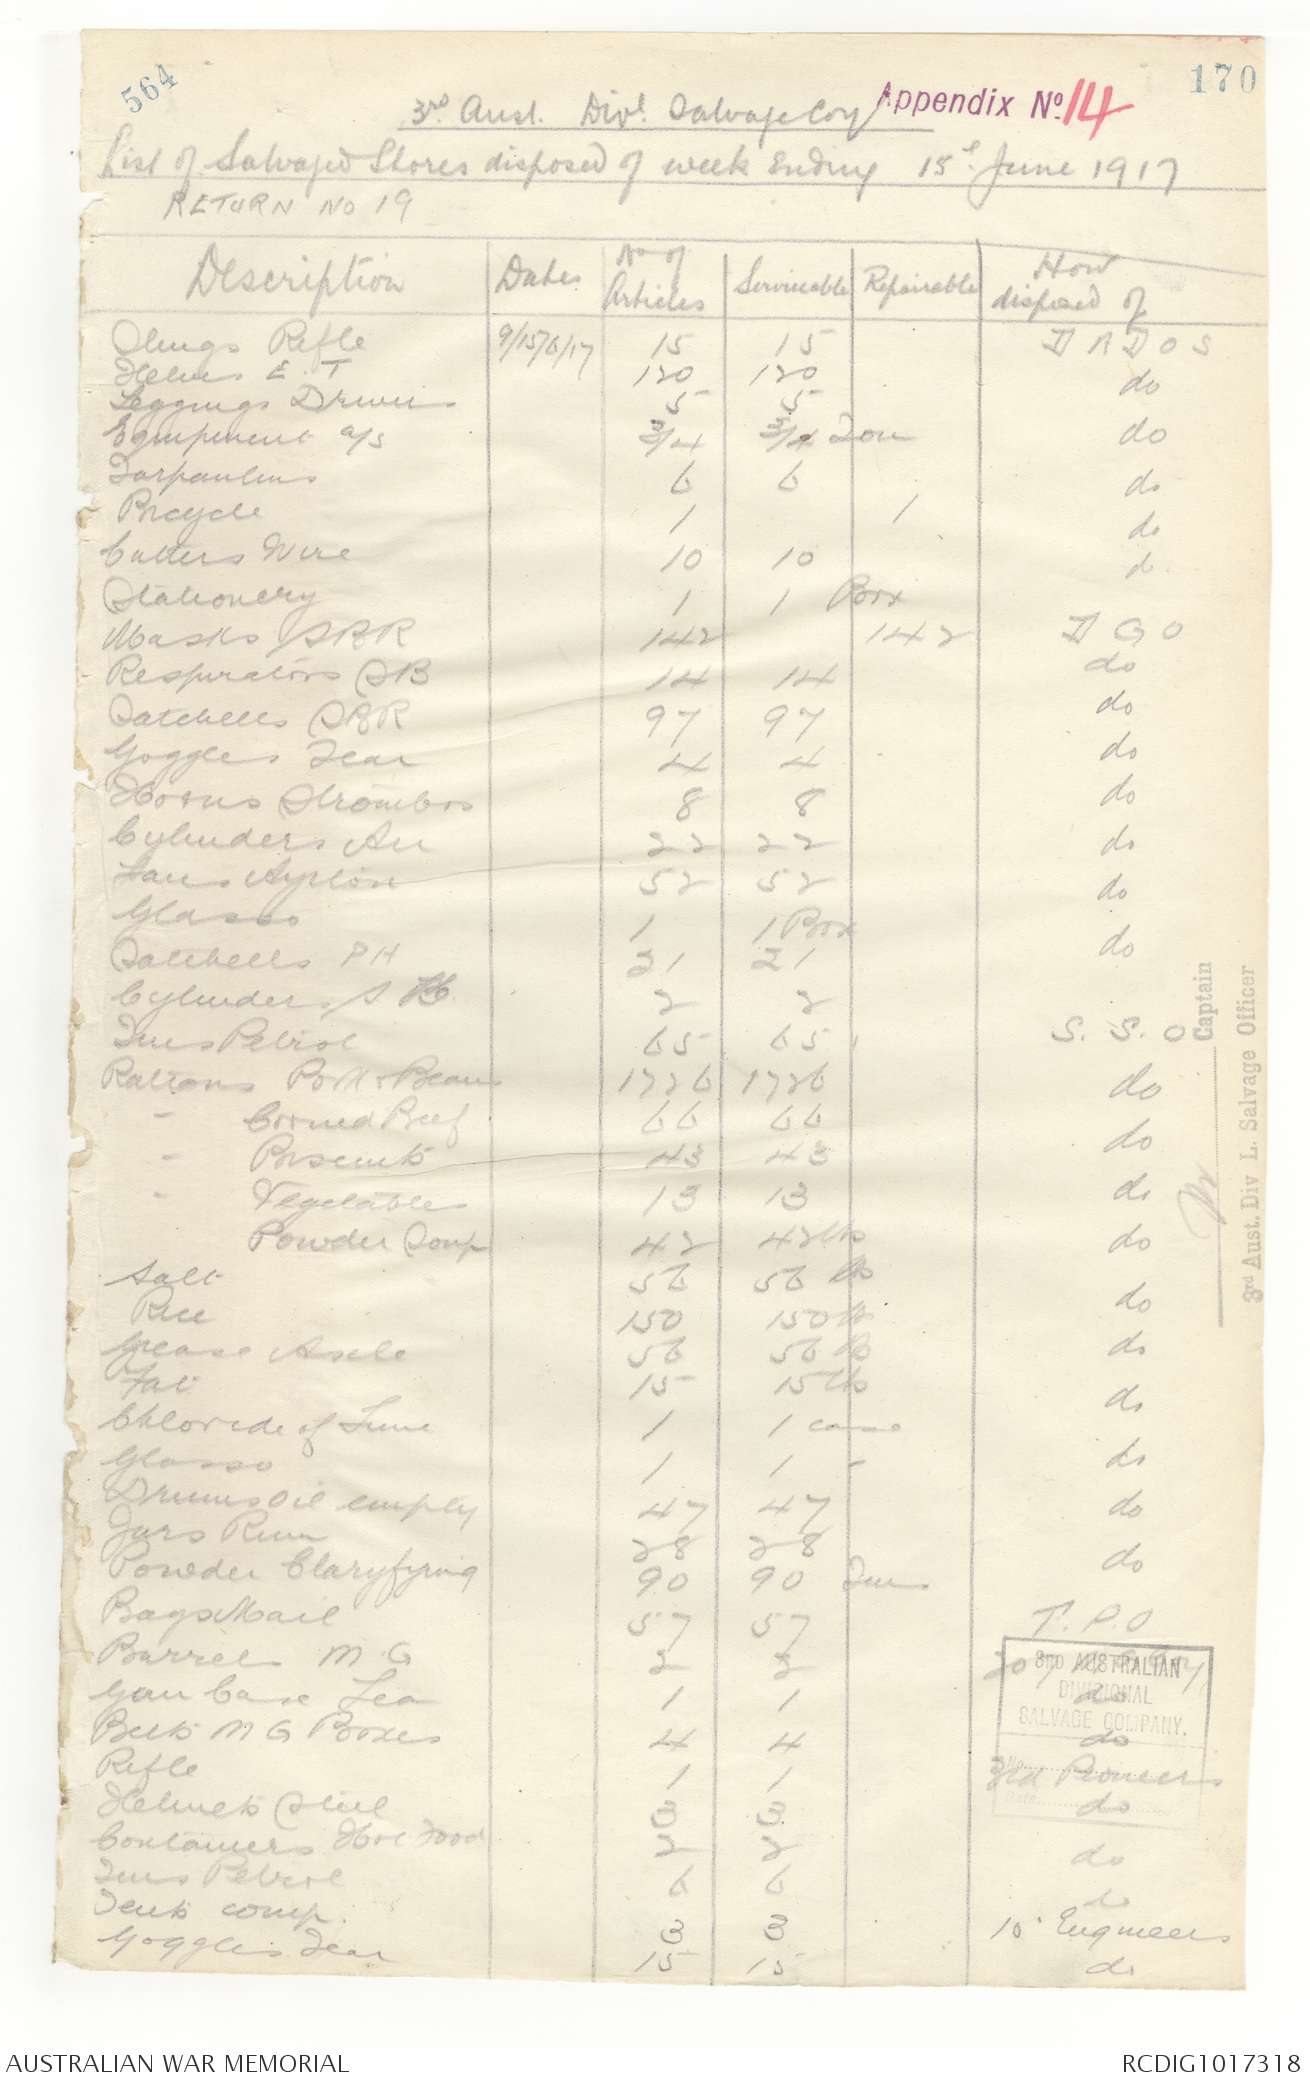 564
170
3rd Aust. Divl. Salvage Coy
Appendix No. 14
List of Salvaged Stores disposed of week ending 15th June 1917
RETURN NO 19
Description Dates No of Articles Serviceable Repairable How disposed of
Slings Rifle 9/15/6/17 15 15 DADOS
Helves E. T 120 120 do
Leggings Drivers 5 5
Equipment a/s 3/4 3/4 Ton do
Tarpaulins 6 6 do
Bicycle 1 1 do
Cutters Wire 10 10 do
Stationery 1 1 Box
Masks SBR 142 142 DGO
Respirators SB 14 14 do
Satchells SBR 97 97 do
Goggles Tear 4 4 do
Horns Strombos 8 8 do
Cylinders Air 22 22 do
Fans Ayrton 52 52 do
Glasso 1 1 Box
Satchells PH 21 21 do
Cylinders 2 2
Tins Petrol 65 65 S. S. O
Rations Pork & Beans 1726 1726 do
" Corned Beef 66 66 do
" Biscuits 43 43
" Vegetables 13 13 do
Powder Soup 42 42 lbs do
Salt 56 56 lbs
Rice 150 150 lbs do
Grease Axle 56 56 lbs do
Fat 15 15 lbs do
Chloride of Lime 1 1 case
Glasso 1 1 " do
Drums Oil empty 47 47 do
Jars Rum 28 28
Powder Claryfying 90 90 Tins do
Bags Mail 57 57 T. P. O
Barrels M G 2 2
Gun Case Lea 1 1 do
Belts M G Boxes 4 4 do
Rifle 1 1 3rd Pioneers
Helmets Steel 3 3 do
Containers Hot Food 2 2 do
Tins Petrol 6 6 do
Tents comp. 3 3 10 Engineers
Goggles Tear 15 15 do
Captain
3rd Aust. Div L. Salvage Officer
3RD AUSTRALIAN
DIVISIONAL
SALVAGE COMPANY.
No.
Date
AUSTRALIAN WAR MEMORIAL
RCDIG1017318